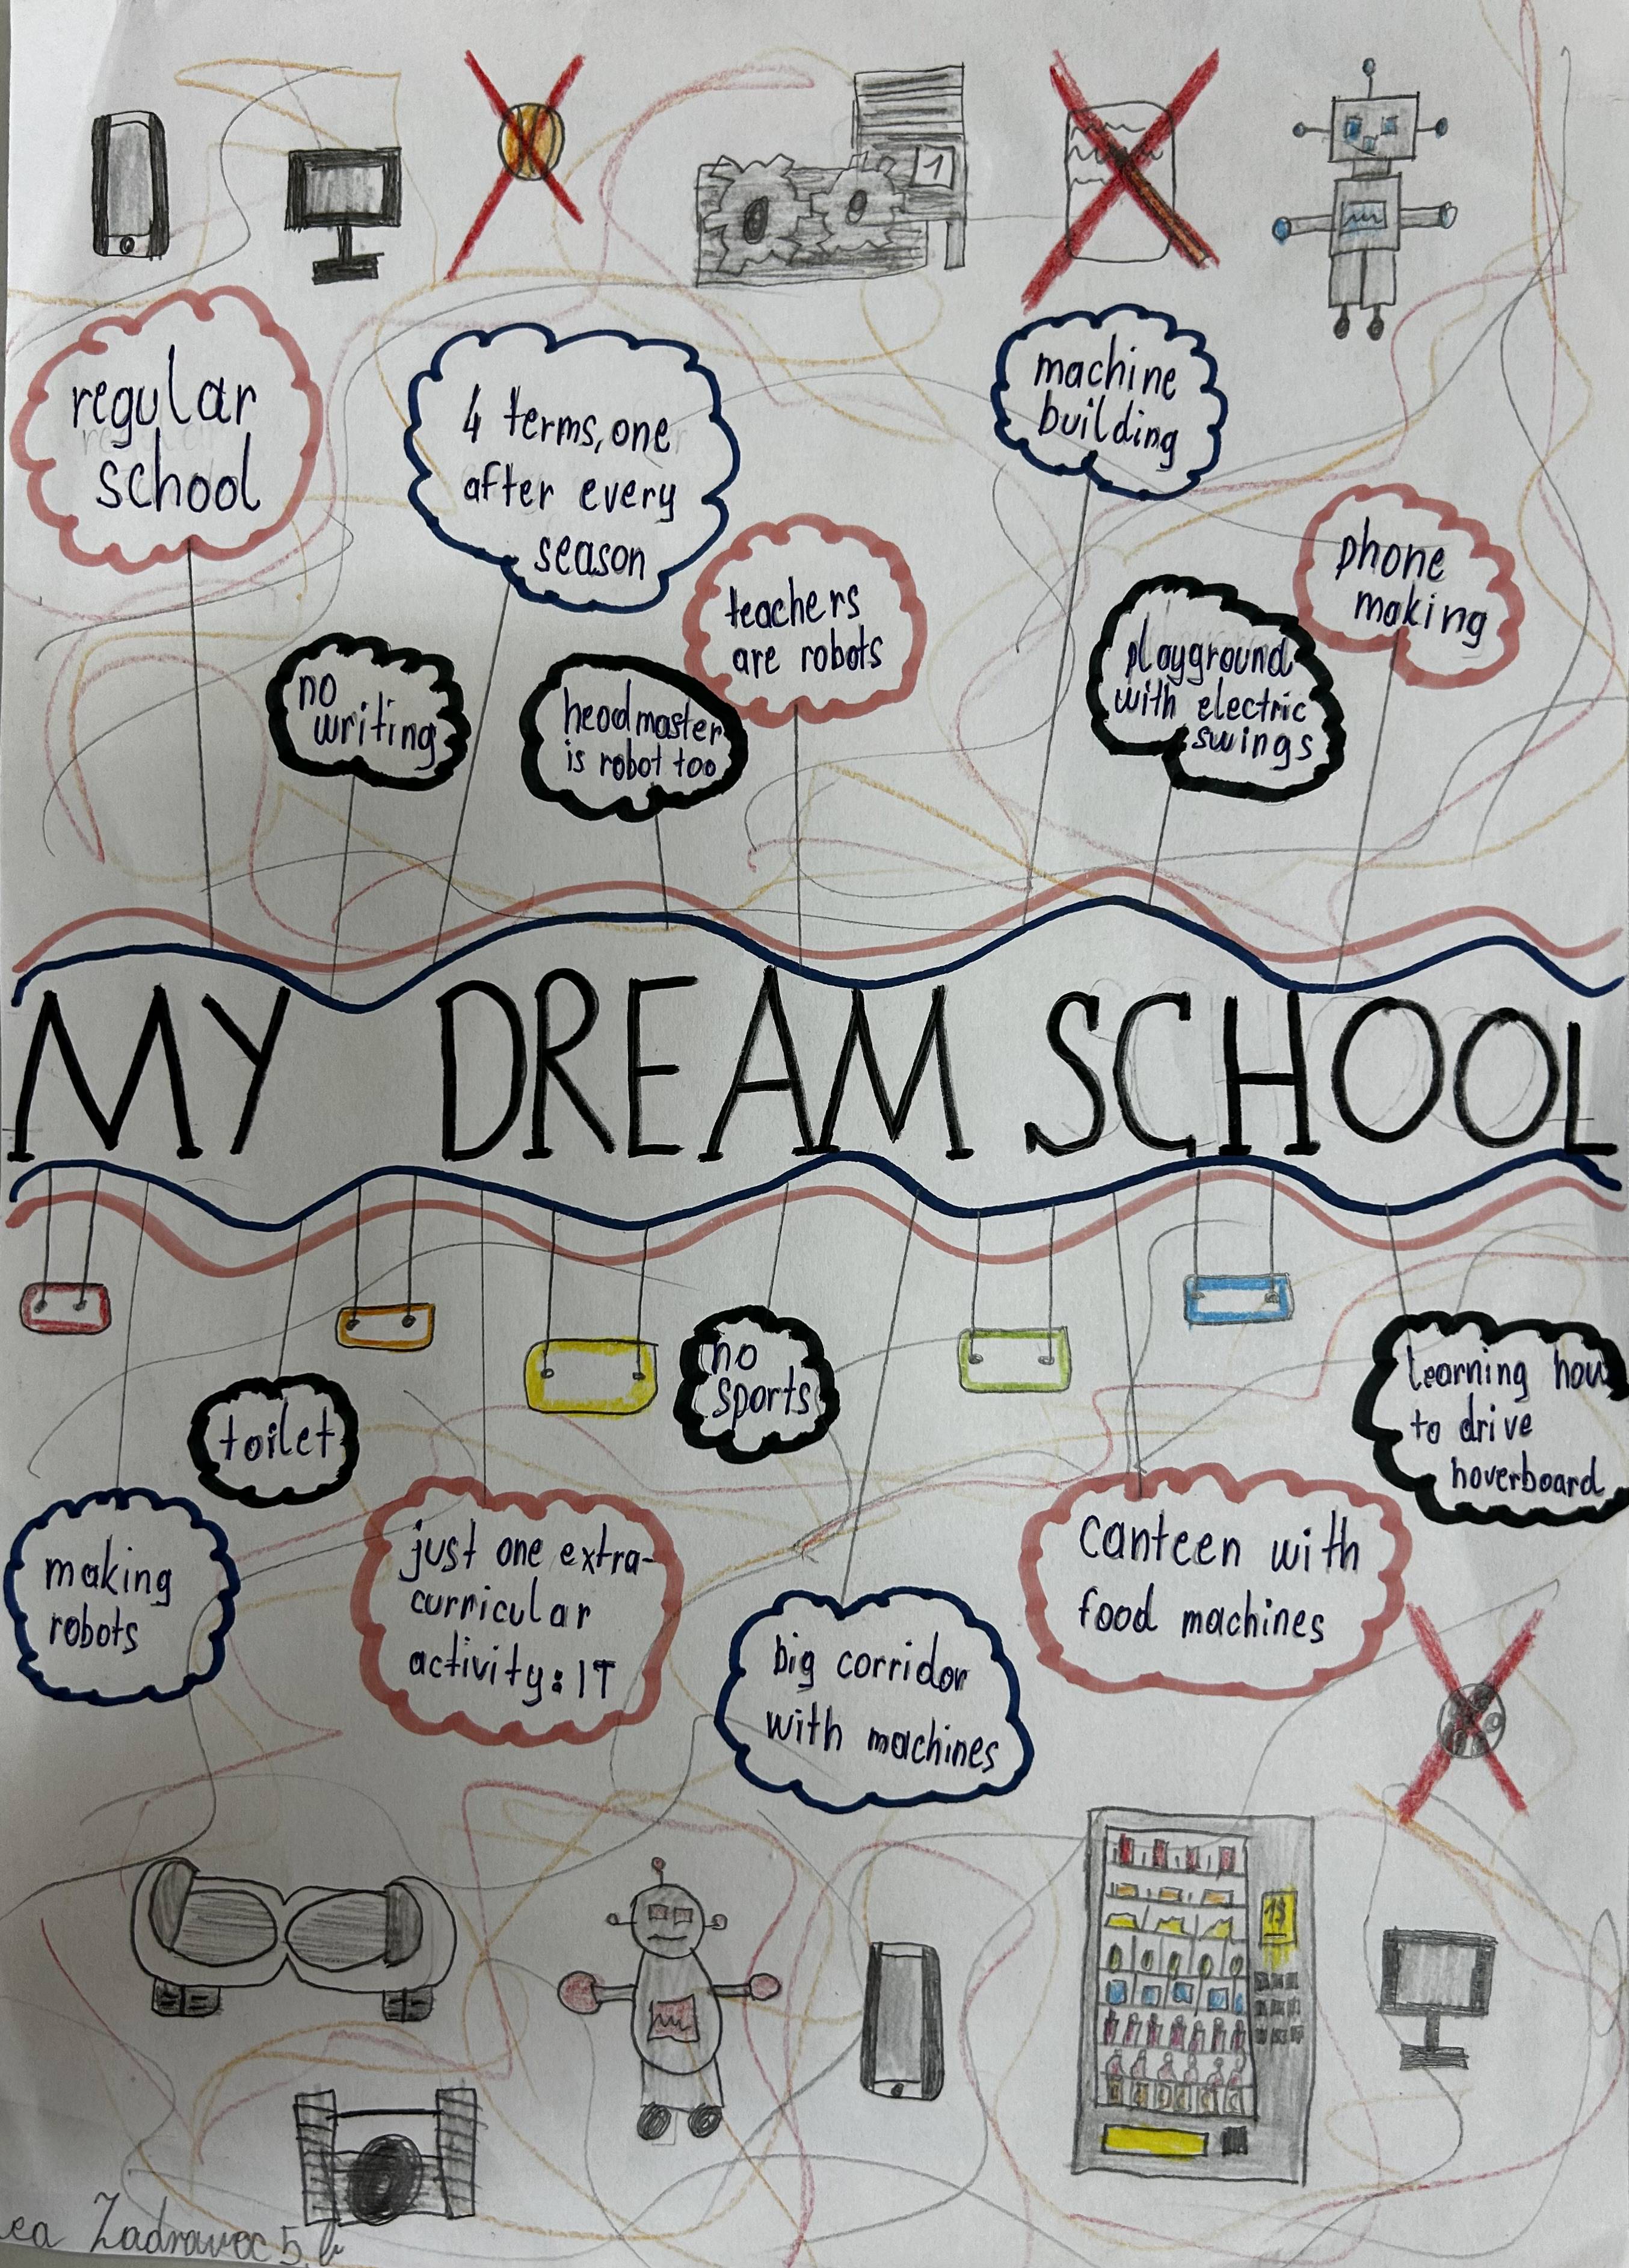 1
regular
school
4 terms, one
after every
season
machine
building
phone
making
teachers
are robots
no
writing
headmaster
is robot too
playground
with electric
swings
MY DREAM SCHOOL
no
sports
learning how
to drive
hoverboard
toilet
making
robots
just one extra-
curricular
activity: IT
canteen with
food machines
big corridor
with machines
ea Zadravec 5. b